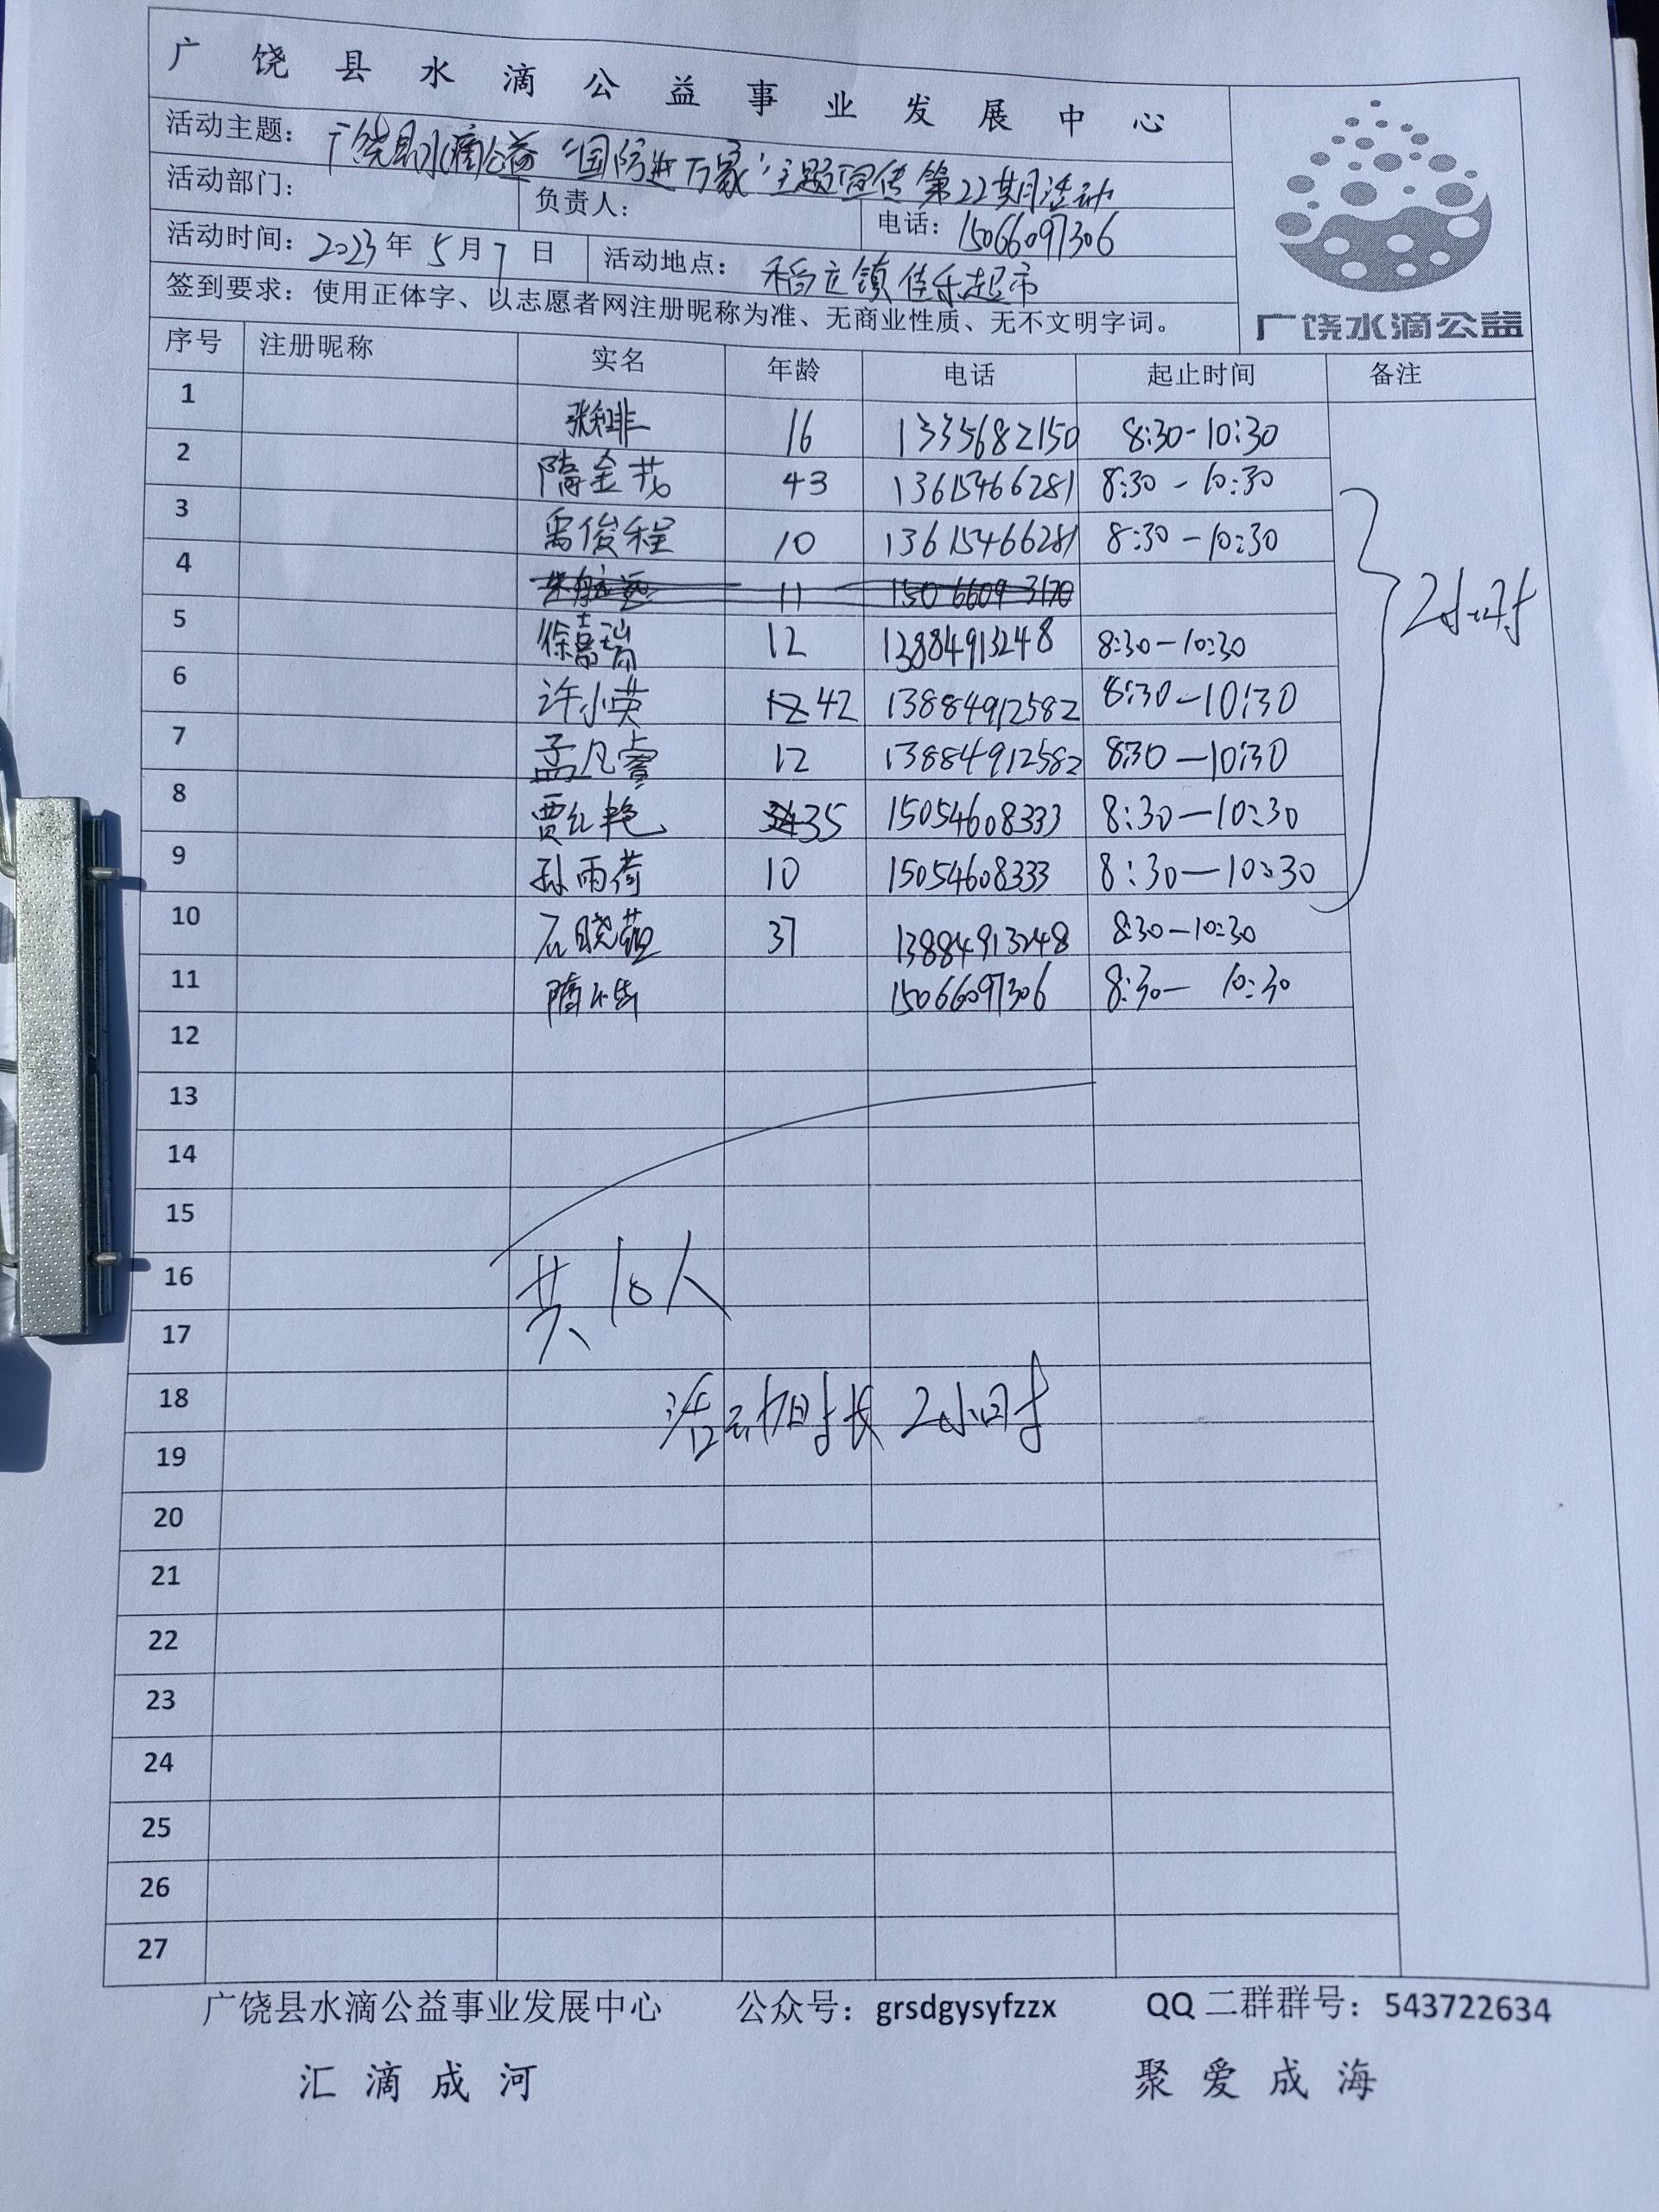 广饶县水滴公益事业发展中心
活动主题：广饶县水滴公益“国防进万家”主题宣传第22期活动
活动部门： 负责人： 电话：15066097306
活动时间：2023年5月7日 活动地点：稻庄镇佳乐超市
签到要求：使用正体字、以志愿者网注册昵称为准、无商业性质、无不文明字词。
广饶水滴公益
序号 注册昵称 实名 年龄 电话 起止时间 备注
1 张翔非 16 1335682150 8:30-10:30
2 隋金花 43 13615466281 8:30-10:30
3 禹俊程 10 13615466281 8:30-10:30
4 11
2小时
5 徐嘉瑞 12 13884913248 8:30-10:30
6 许小英 42 13884912582 8:30-10:30
7 孟凡睿 12 13884912582 8:30-10:30
8 贾红艳 35 15054608333 8:30-10:30
9 孙雨荷 10 15054608333 8:30-10:30
10 石晓燕 37 13884913248 8:30-10:30
11 隋 15066097306 8:30-10:30
12
13
14
15
16 共10人
17
18 活动时长2小时
19
20
21
22
23
24
25
26
27
广饶县水滴公益事业发展中心 公众号：grsdgysyfzzx QQ二群群号：543722634
汇滴成河 聚爱成海